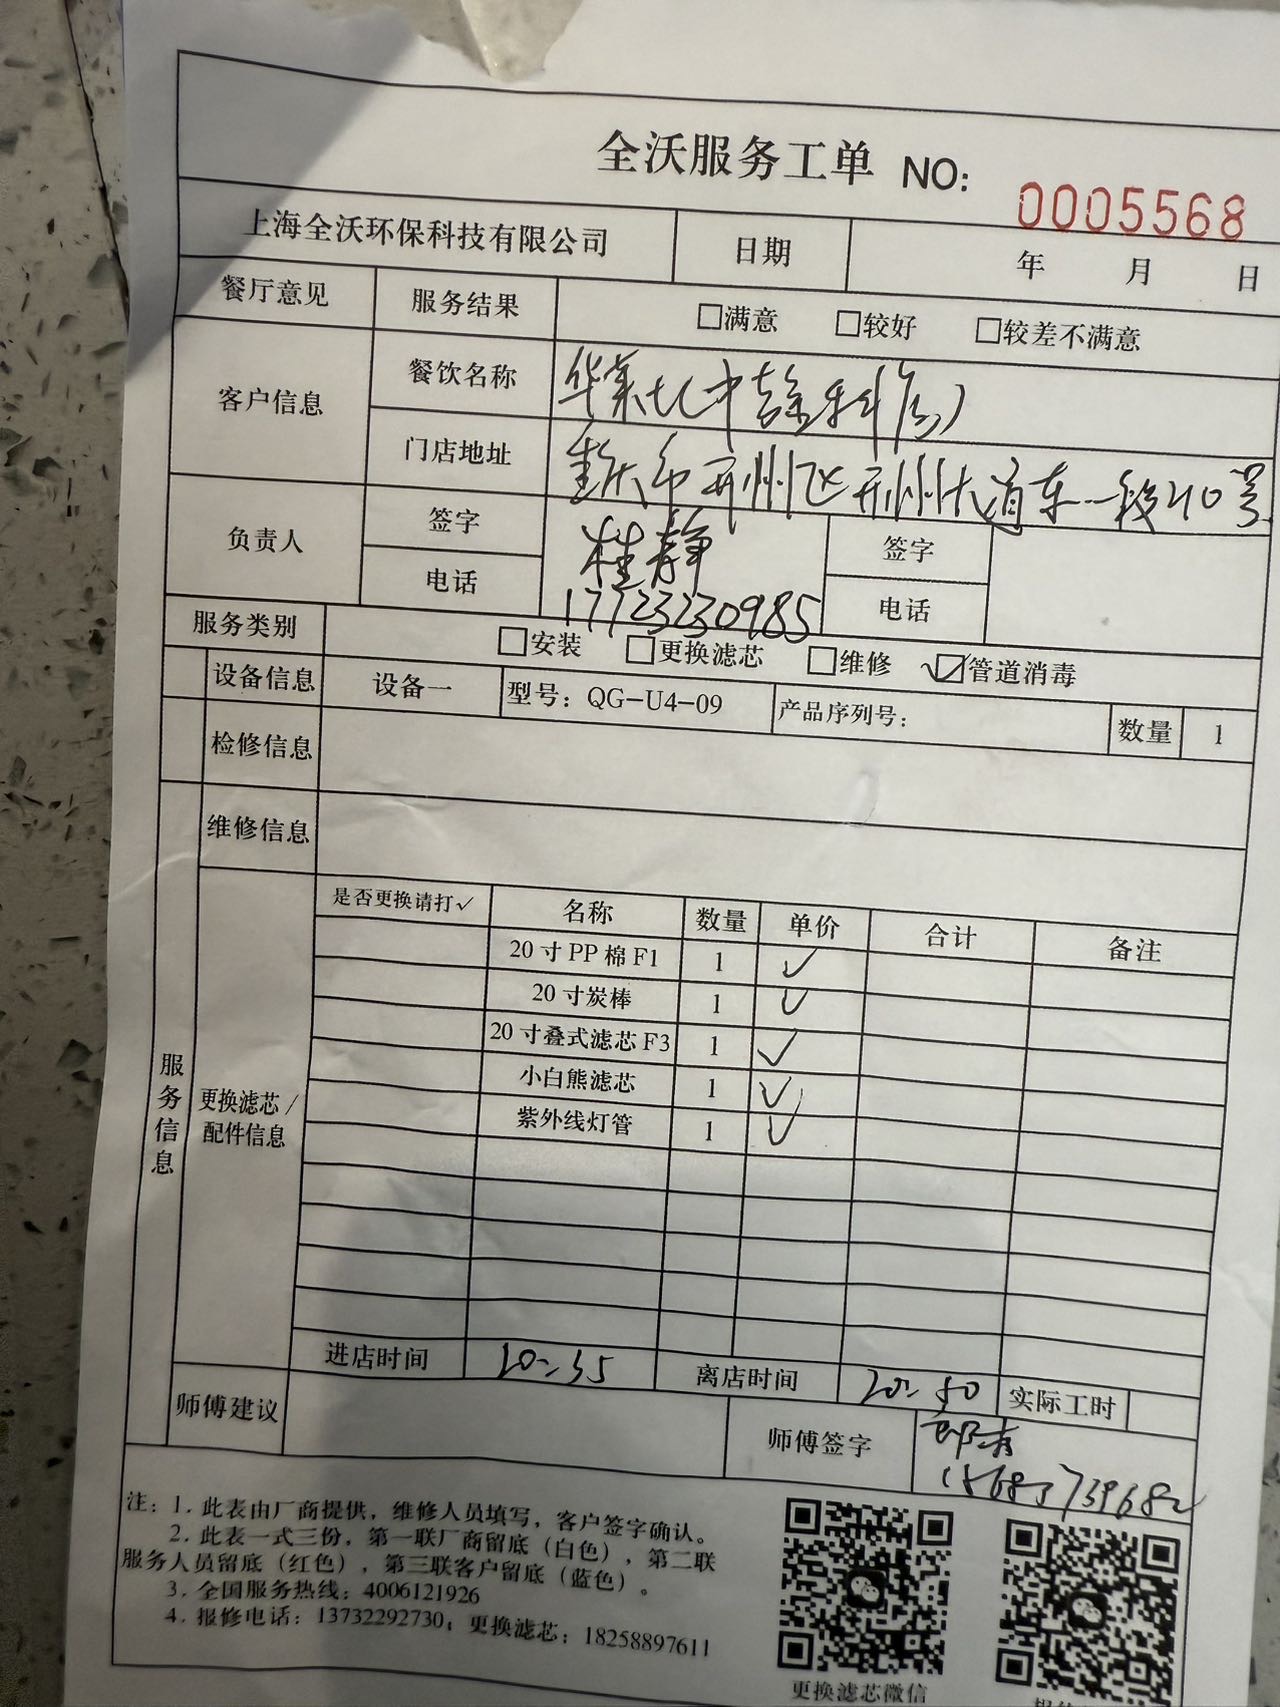 全沃服务工单 NO: 0005568
上海全沃环保科技有限公司 日期 年 月 日
餐厅意见 服务结果 □满意 □较好 □较差不满意
客户信息 餐饮名称 华莱士
门店地址 重庆市开州区开州大道东一段210号
负责人 签字 桂静 签字
电话 17723230985 电话
服务类别 □安装 □更换滤芯 □维修 ☑管道消毒
设备信息 设备一 型号：QG-U4-09 产品序列号： 数量 1
检修信息
维修信息
服务信息
更换滤芯/配件信息
是否更换请打✓ 名称 数量 单价 合计 备注
20寸PP棉F1 1 ✓
20寸炭棒 1 ✓
20寸叠式滤芯F3 1 ✓
小白熊滤芯 1 ✓
紫外线灯管 1 ✓
进店时间 20:35 离店时间 20:50 实际工时
师傅建议 师傅签字
注：1. 此表由厂商提供，维修人员填写，客户签字确认。
2. 此表一式三份，第一联厂商留底（白色），第二联
服务人员留底（红色），第三联客户留底（蓝色）。
3. 全国服务热线：4006121926
4. 报修电话：13732292730；更换滤芯：18258897611
更换滤芯微信